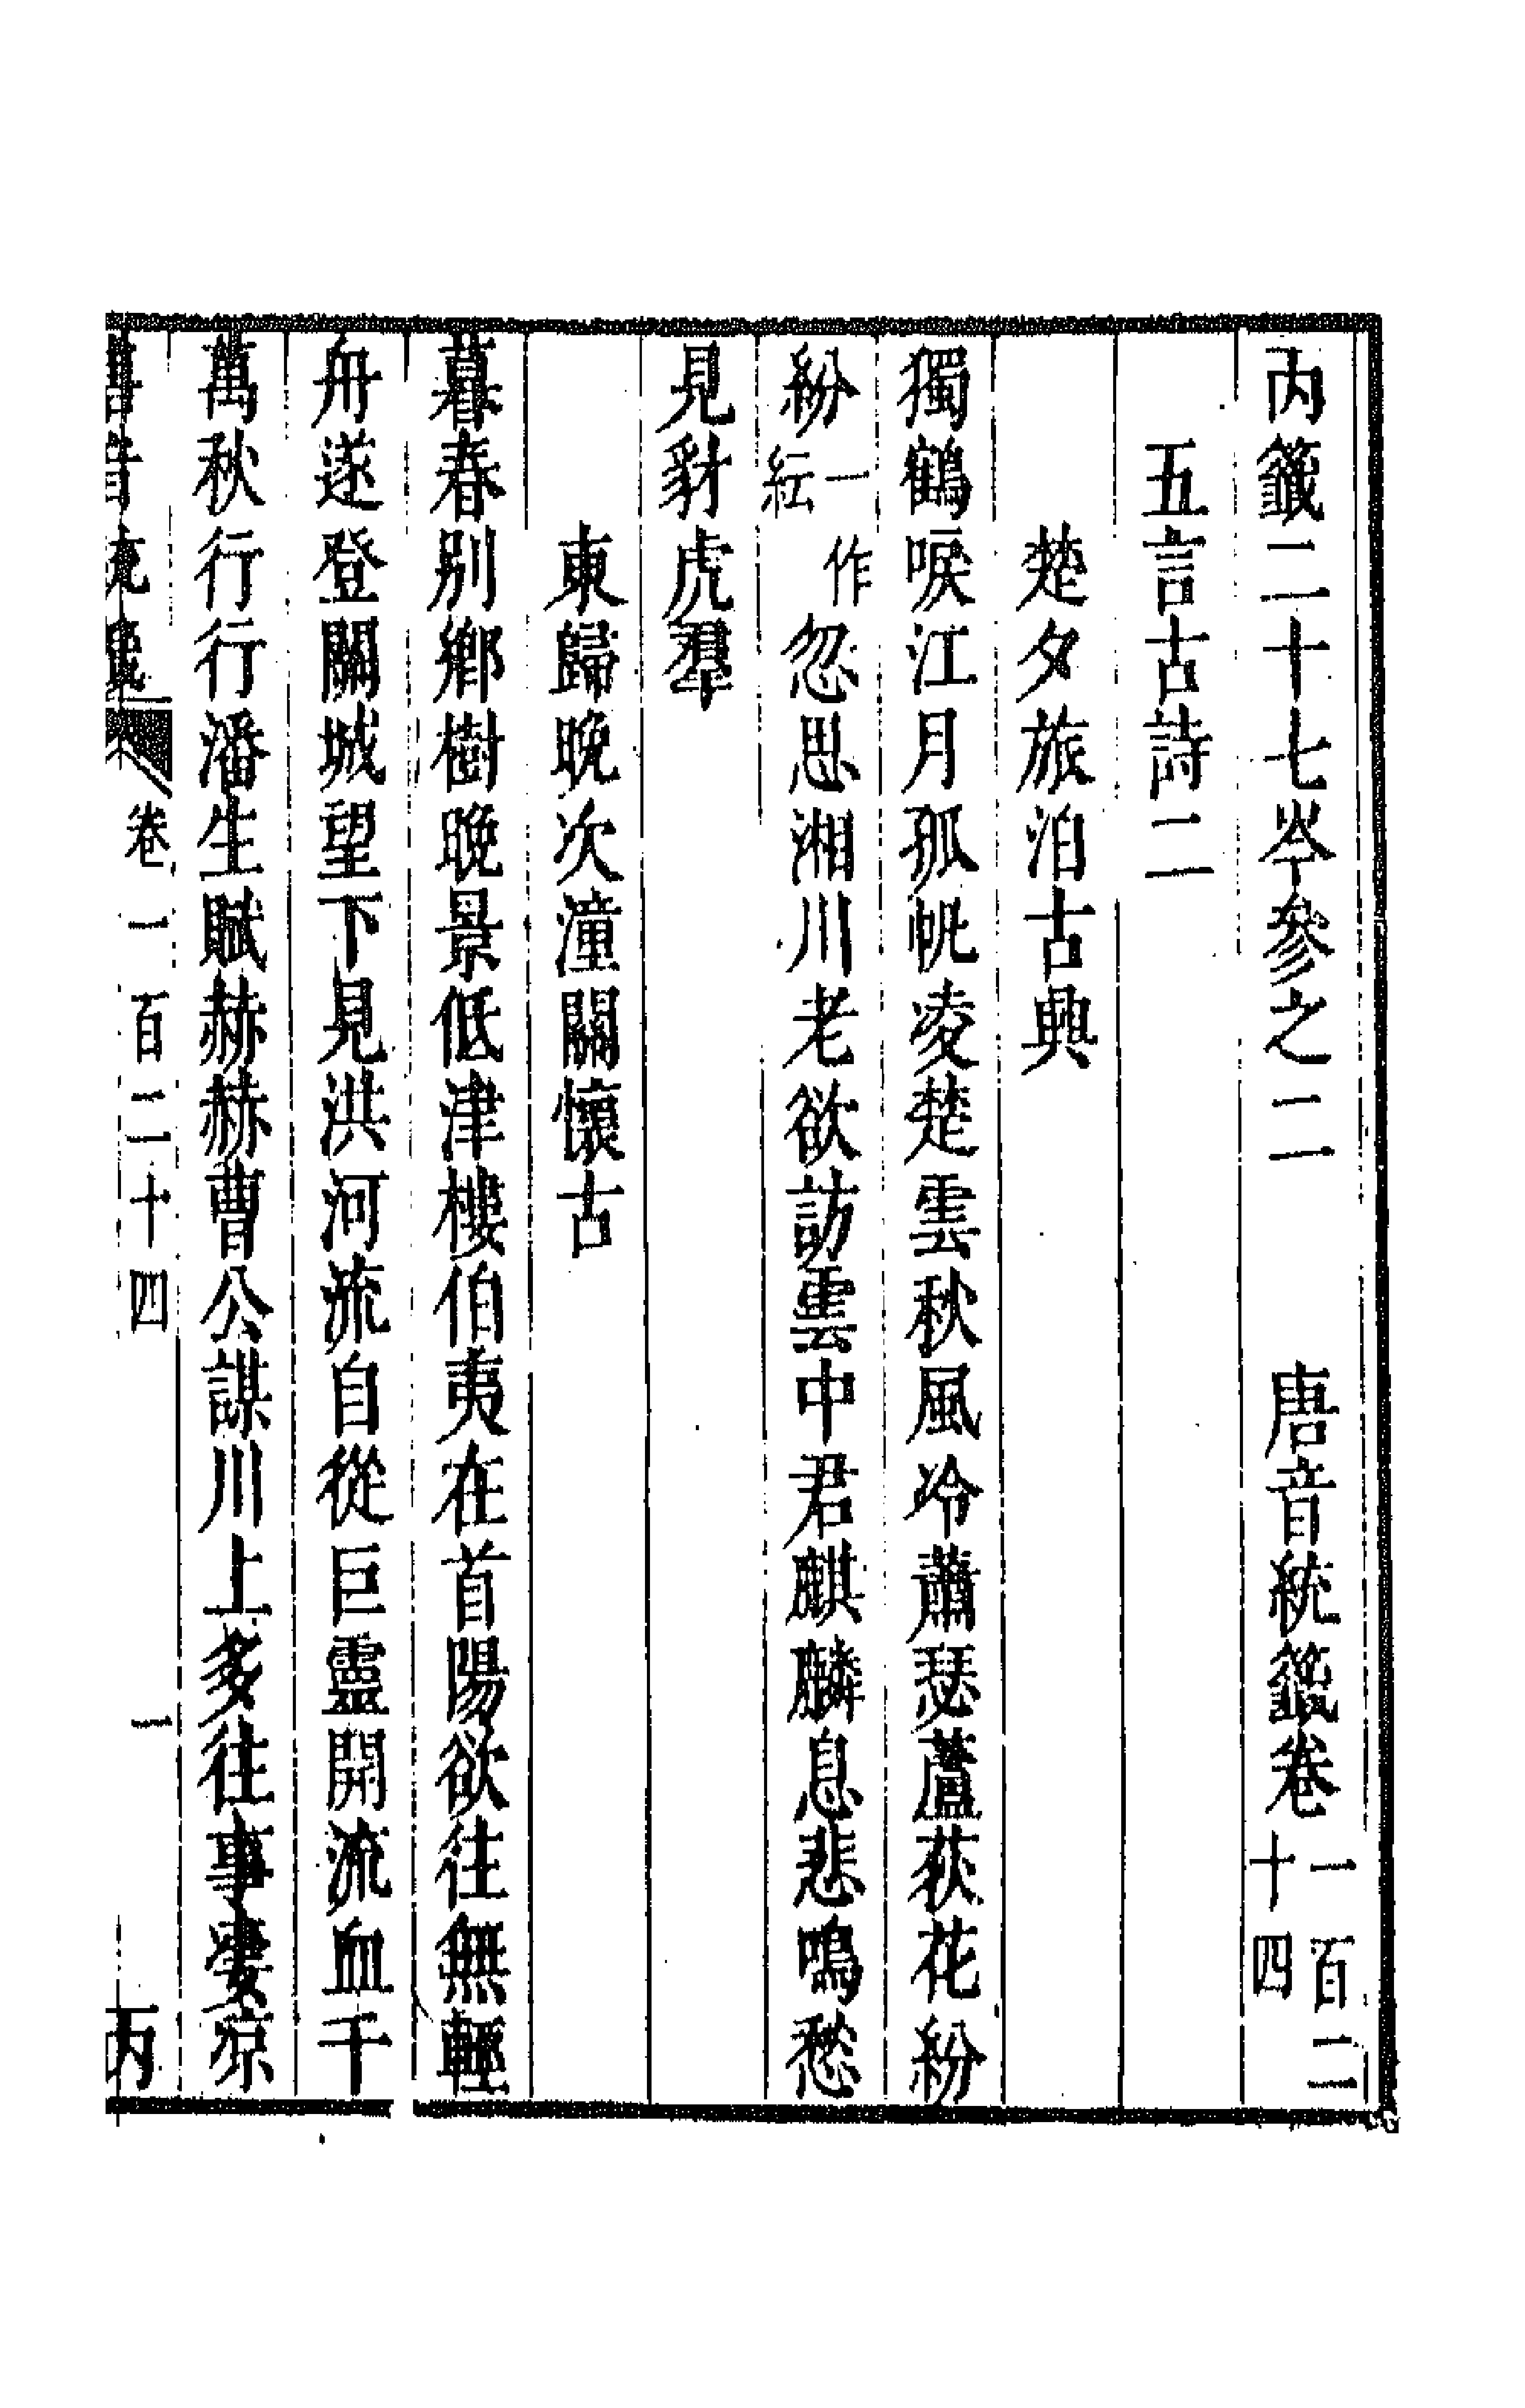 丙籤二十七岑參之二　唐音統籤卷一百二十四
五言古詩二
楚夕旅泊古興
獨鶴唳江月孤帆凌楚雲秋風冷蕭瑟蘆荻花紛
紛一作紜忽思湘川老欲訪雲中君麒麟息悲鳴愁
見豺虎羣
東歸晚次潼關懷古
暮春别鄉樹晚景低津樓伯夷在首陽欲往無輕
舟遂登關城望下見洪河流自從巨靈開流血千
萬秋行行潘生賦赫赫曹公謀川上多往事淒凉
唐音統籤 卷一百二十四 一 丙